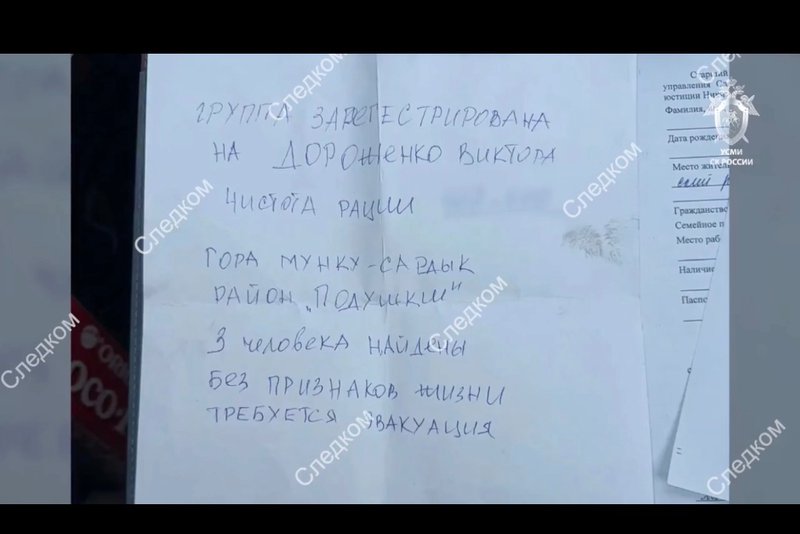 ГРУППА ЗАРЕГЕСТРИРОВАНА
НА ДОРОЖЕНКО ВИКТОРА
ЧИСТОТА РАЦИИ
ГОРА МУНКУ-САРДЫК
РАЙОН „ПОДУШКИ"
3 ЧЕЛОВЕКА НАЙДЕНЫ
БЕЗ ПРИЗНАКОВ ЖИЗНИ
ТРЕБУЕТСЯ ЭВАКУАЦИЯ
Старший
управления
юстиции
Фамилия,
Дата рожде
Место жител
Гражданство
Семейное п
Место раб
Наличие
Паспо
УСМИ
СК РОССИИ
Следком
Следком
Следком
Следком
Следком
Следком
Следком
Следком